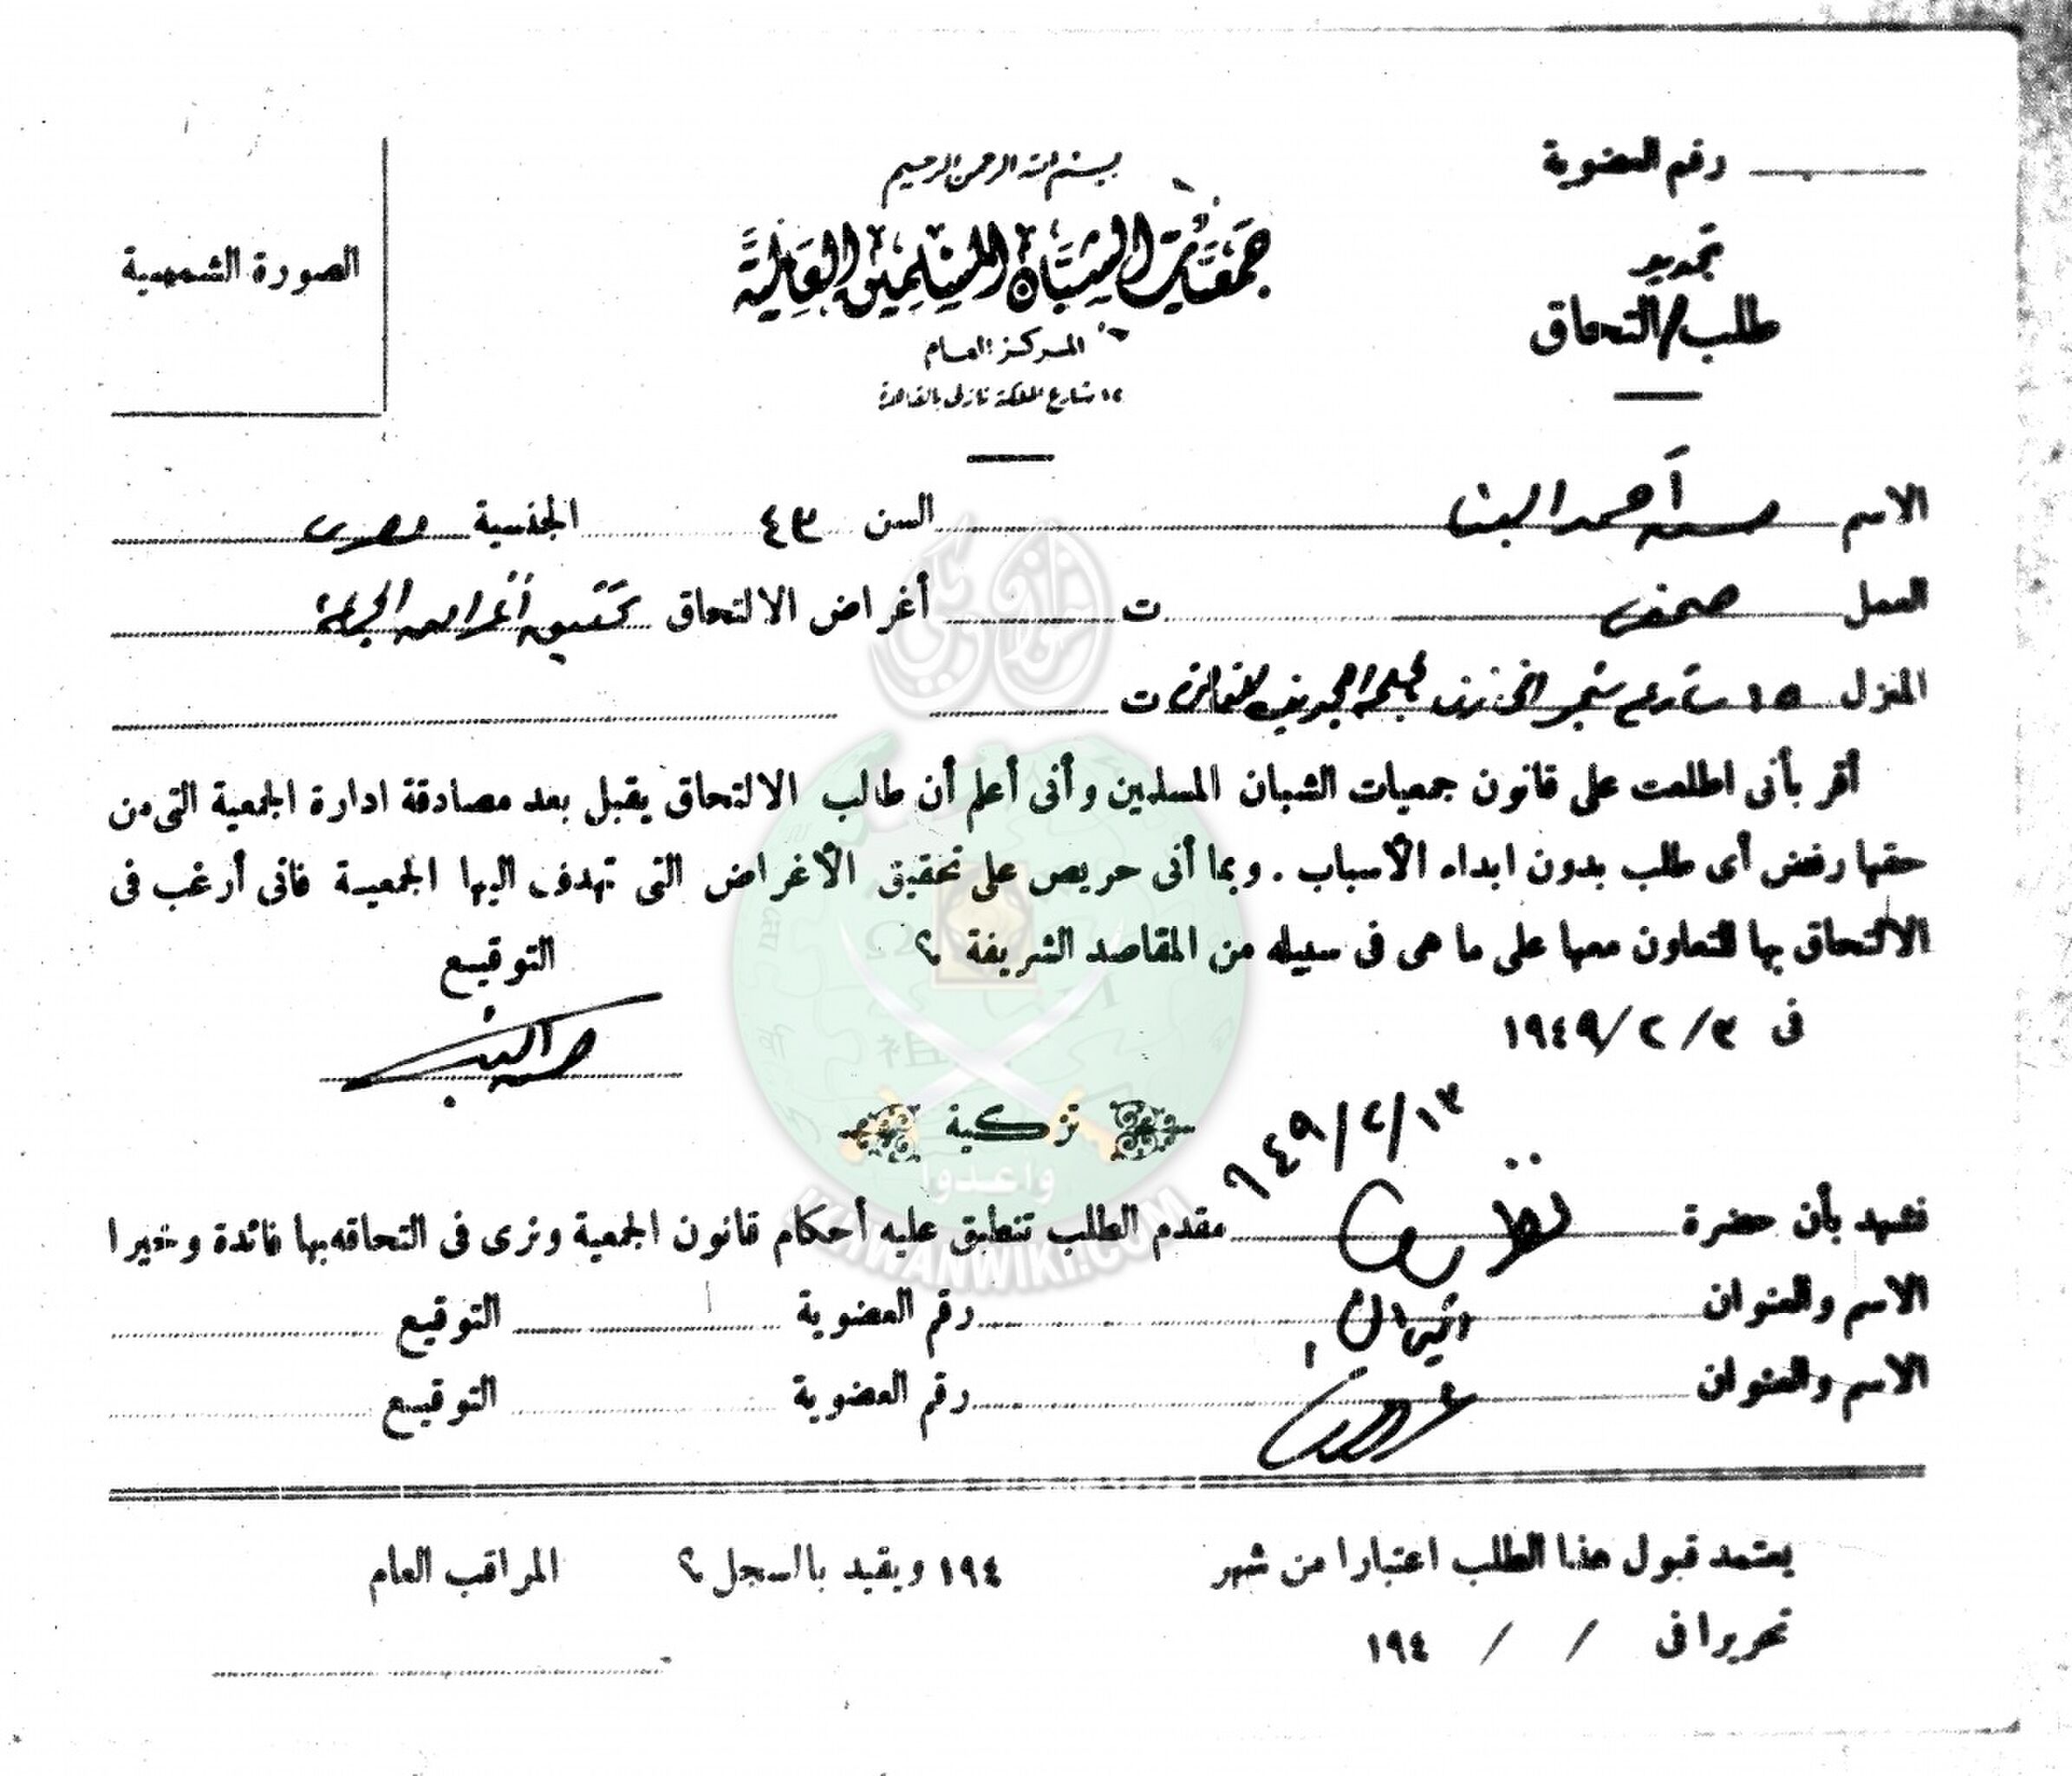 رقم العضوية
تجديد
طلب/التحاق
بسم الله الرحمن الرحيم
جمعيات الشبان المسلمين العالمية
المركز العام
١٢ شارع الملكة نازلى بالقاهرة
الصورة الشمسية
الاسم حسن أحمد البنا السن ٤٣ الجنسية مصرى
العمل صحفى ت أغراض الالتحاق تحقيق أغراض الجمعية
المنزل ١٥ شارع سنجر الخازن بالحلمية الجديدة ت
أقر بأنى اطلعت على قانون جمعيات الشبان المسلمين وأنى أعلم أن طالب الالتحاق يقبل بعد مصادقة ادارة الجمعية التى من
حقها رفض أى طلب بدون ابداء الأسباب . وبما أنى حريص على تحقيق الأغراض التى تهدف اليها الجمعية فانى أرغب فى
الالتحاق بها للتعاون معها على ما هى فى سبيله من المقاصد الشريفة ؟
التوقيع
حسن البنا
فى ٣ / ٢ / ١٩٤٩
تزكية
٩٤٩/٢/١٣
نشهد بأن حضرة مقدم الطلب تنطبق عليه أحكام قانون الجمعية ونرى فى التحاقه بها فائدة وخيرا
الاسم والعنوان رقم العضوية التوقيع
الاسم والعنوان رقم العضوية التوقيع
يعتمد قبول هذا الطلب اعتبارا من شهر ١٩٤ ويقيد بالسجل ؟ المراقب العام
تحريرا فى / / ١٩٤
واعدوا
IKHWANWIKI.COM